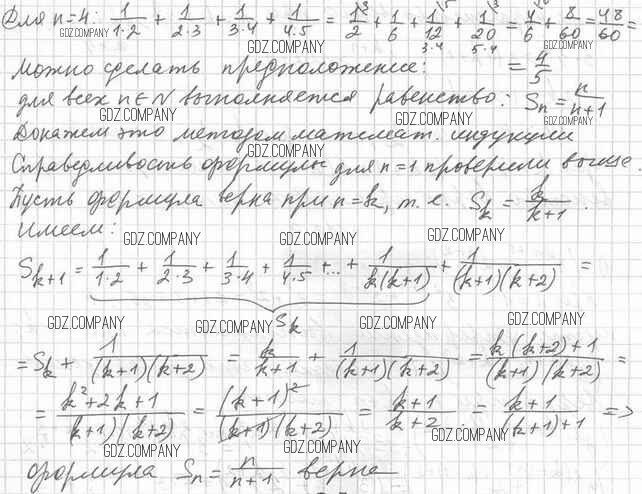 Для n=4: 1/(1·2) + 1/(2·3) + 1/(3·4) + 1/(4·5) = 1/2 + 1/6 + 1/12 + 1/20 = 4/6 + 8/60 = 48/60 =
GDZ.COMPANY GDZ.COMPANY GDZ.COMPANY GDZ.COMPANY
можно сделать предположение: = 4/5
для всех n∈N выполняется равенство: Sn = n/(n+1)
GDZ.COMPANY GDZ.COMPANY GDZ.COMPANY
Докажем это методом математ. индукции
GDZ.COMPANY
Справедливость формулы для n=1 проверили выше.
Пусть формула верна при n=k, т.е. Sk = k/(k+1).
GDZ.COMPANY GDZ.COMPANY
Имеем:
GDZ.COMPANY GDZ.COMPANY GDZ.COMPANY
Sk+1 = 1/(1·2) + 1/(2·3) + 1/(3·4) + 1/(4·5) + ... + 1/(k(k+1)) + 1/((k+1)(k+2)) =
Sk
GDZ.COMPANY GDZ.COMPANY GDZ.COMPANY GDZ.COMPANY
= Sk + 1/((k+1)(k+2)) = k/(k+1) + 1/((k+1)(k+2)) = (k(k+2)+1)/((k+1)(k+2)) =
= (k²+2k+1)/(k+1)(k+2) = (k+1)²/((k+1)(k+2)) = (k+1)/(k+2) = (k+1)/((k+1)+1) =>
GDZ.COMPANY GDZ.COMPANY GDZ.COMPANY
формула Sn = n/(n+1) верна